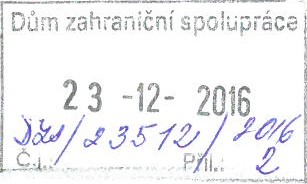 Dům zahraniční spolupráce
23 -12- 2016
DZS/23512/2016
Č.j.: Příl.: 2